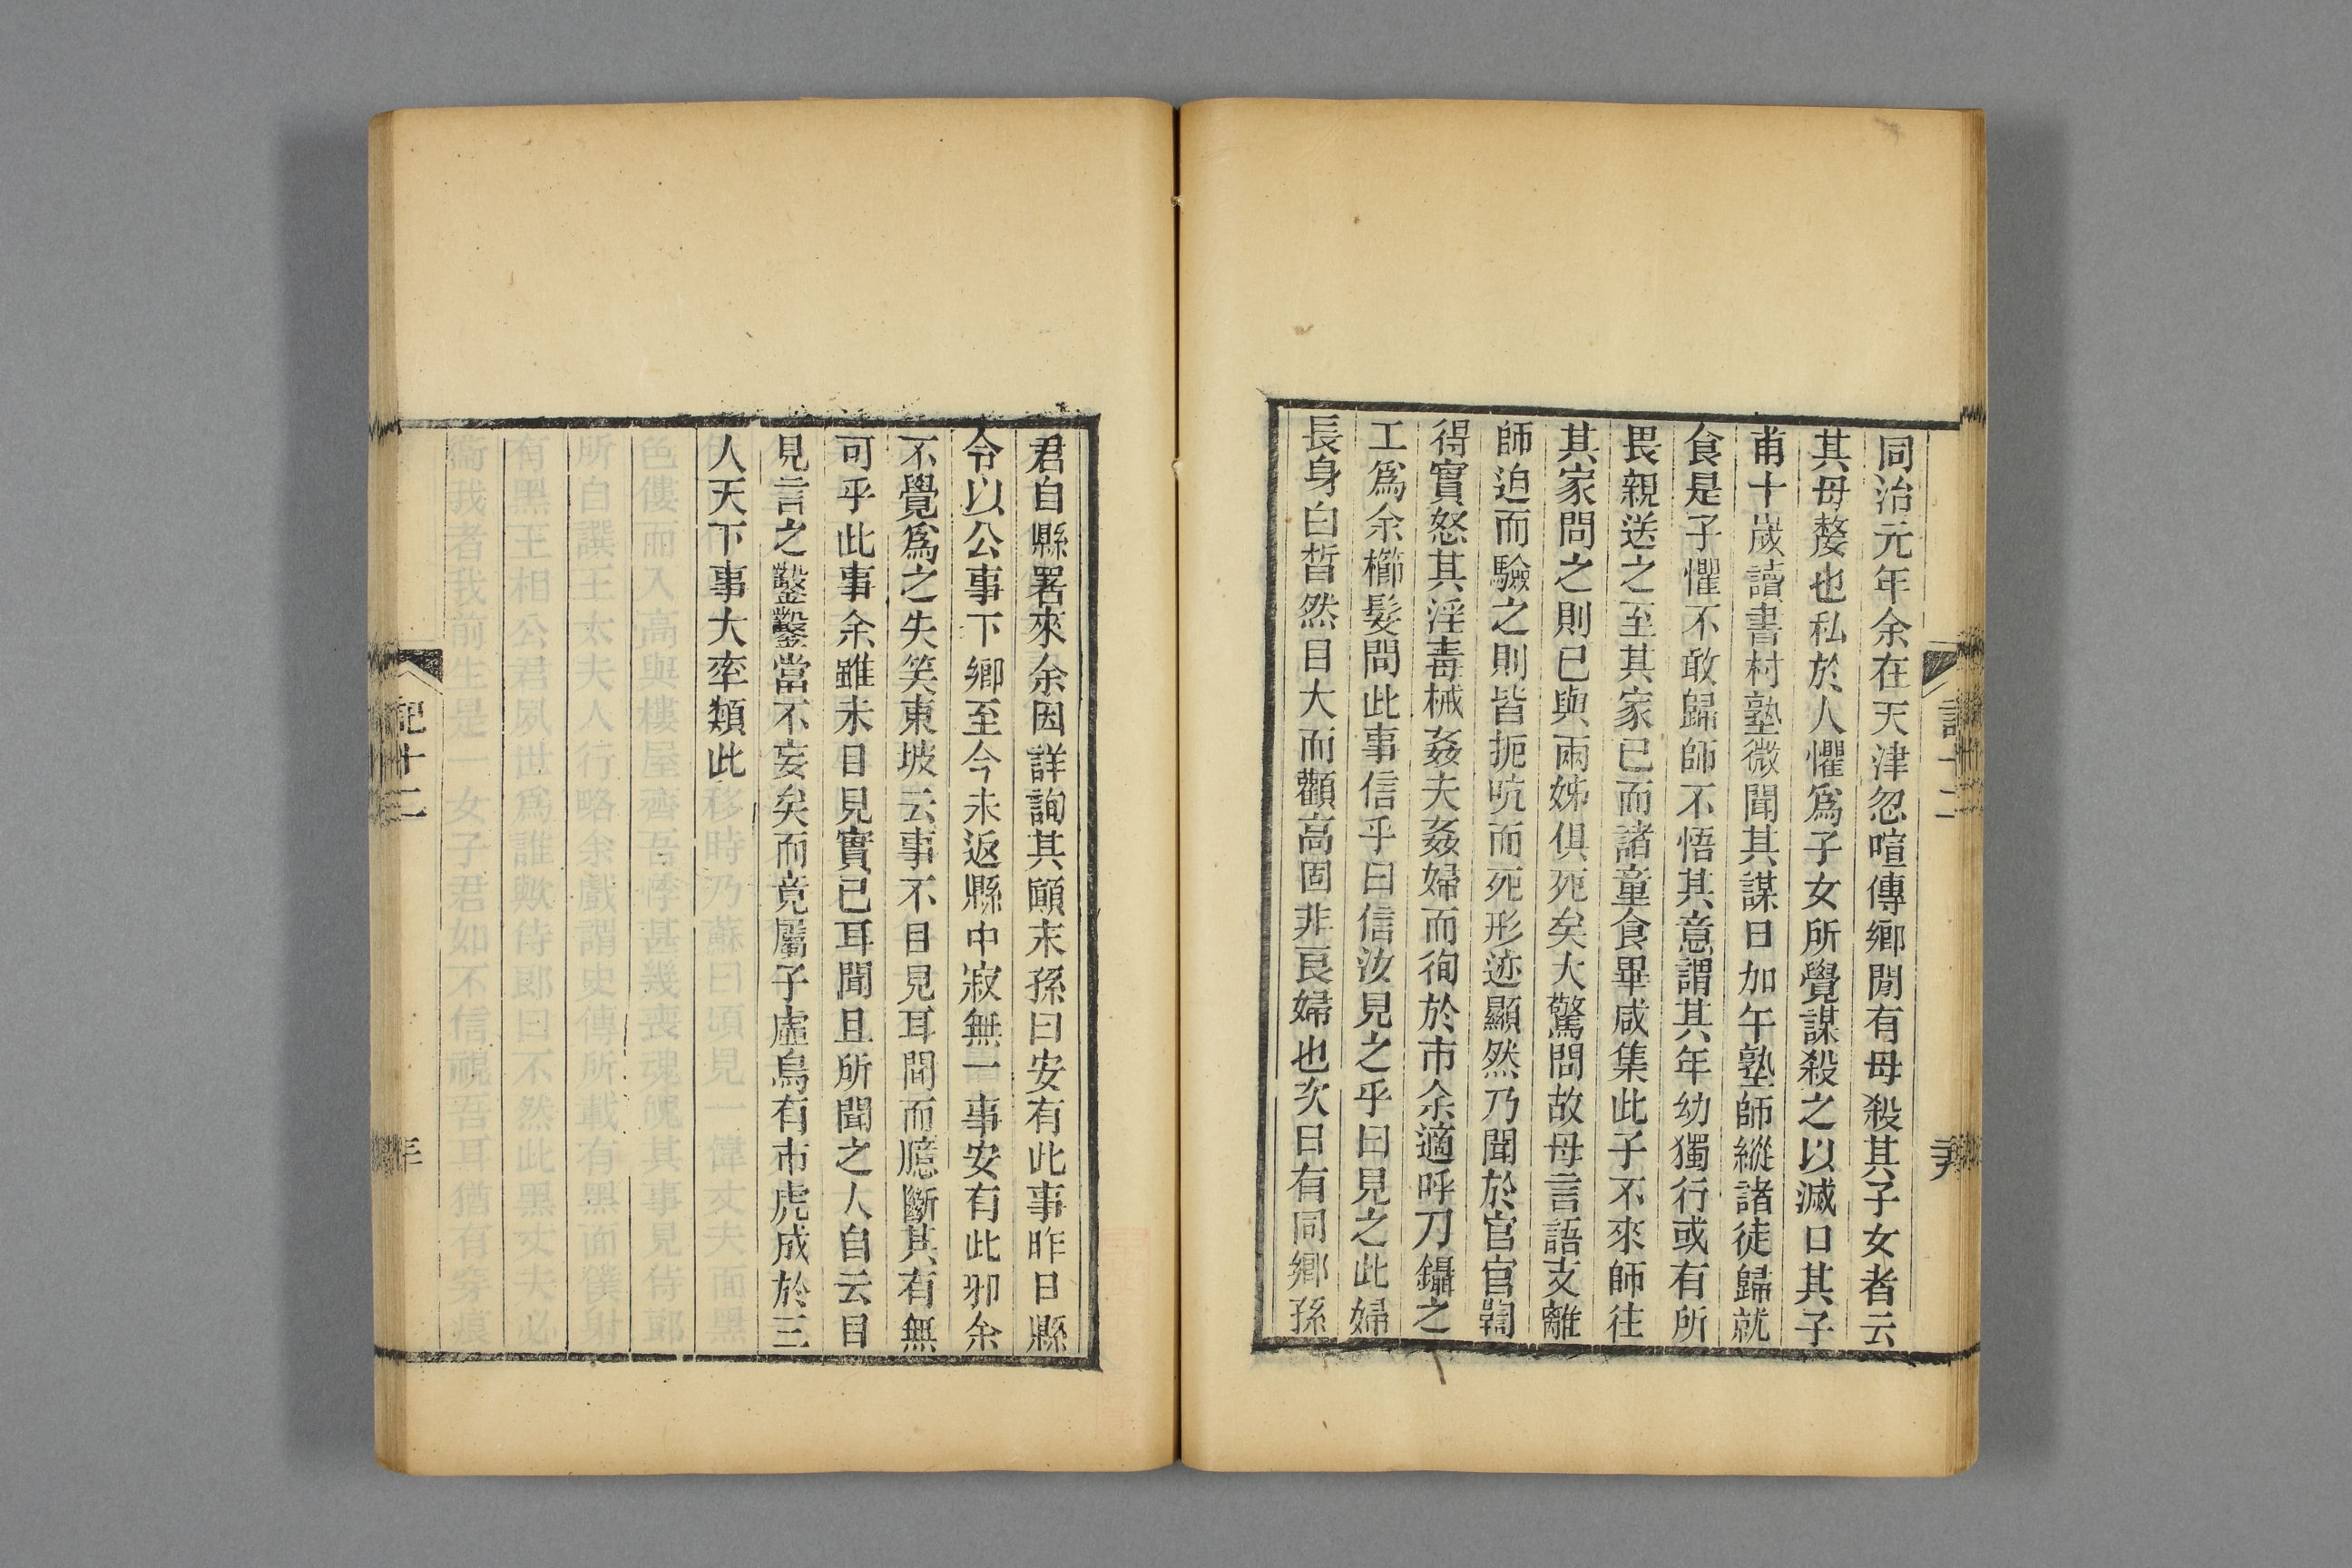 同治元年余在天津忽喧傳鄉閒有母殺其子女者云
其母嫠也私於人懼爲子女所覺謀殺之以滅口其子
甫十歲讀書村塾微聞其謀日加午塾師縱諸徒歸就
食是子懼不敢歸師不悟其意謂其年幼獨行或有所
畏親送之至其家已而諸童食畢咸集此子不來師往
其家問之則已與兩姊俱死矣大驚問故母言語支離
師迫而驗之則皆扼吭而死形迹顯然乃聞於官官鞫
得實怒其淫毒械姦夫姦婦而徇於市余適呼刀鑷之
工爲余櫛髮問此事信乎曰信汝見之乎曰見之此婦
長身白皙然目大而顴高固非良婦也次日有同鄉孫
君自縣署來余因詳詢其顚末孫曰安有此事昨日縣
令以公事下鄉至今未返縣中寂無一事安有此邪余
不覺爲之失笑東坡云事不目見耳聞而臆斷其有無
可乎此事余雖未目見實已耳聞且所聞之人自云目
見言之鑿鑿當不妄矣而竟屬子虛烏有市虎成於三
人天下事大率類此
記十二